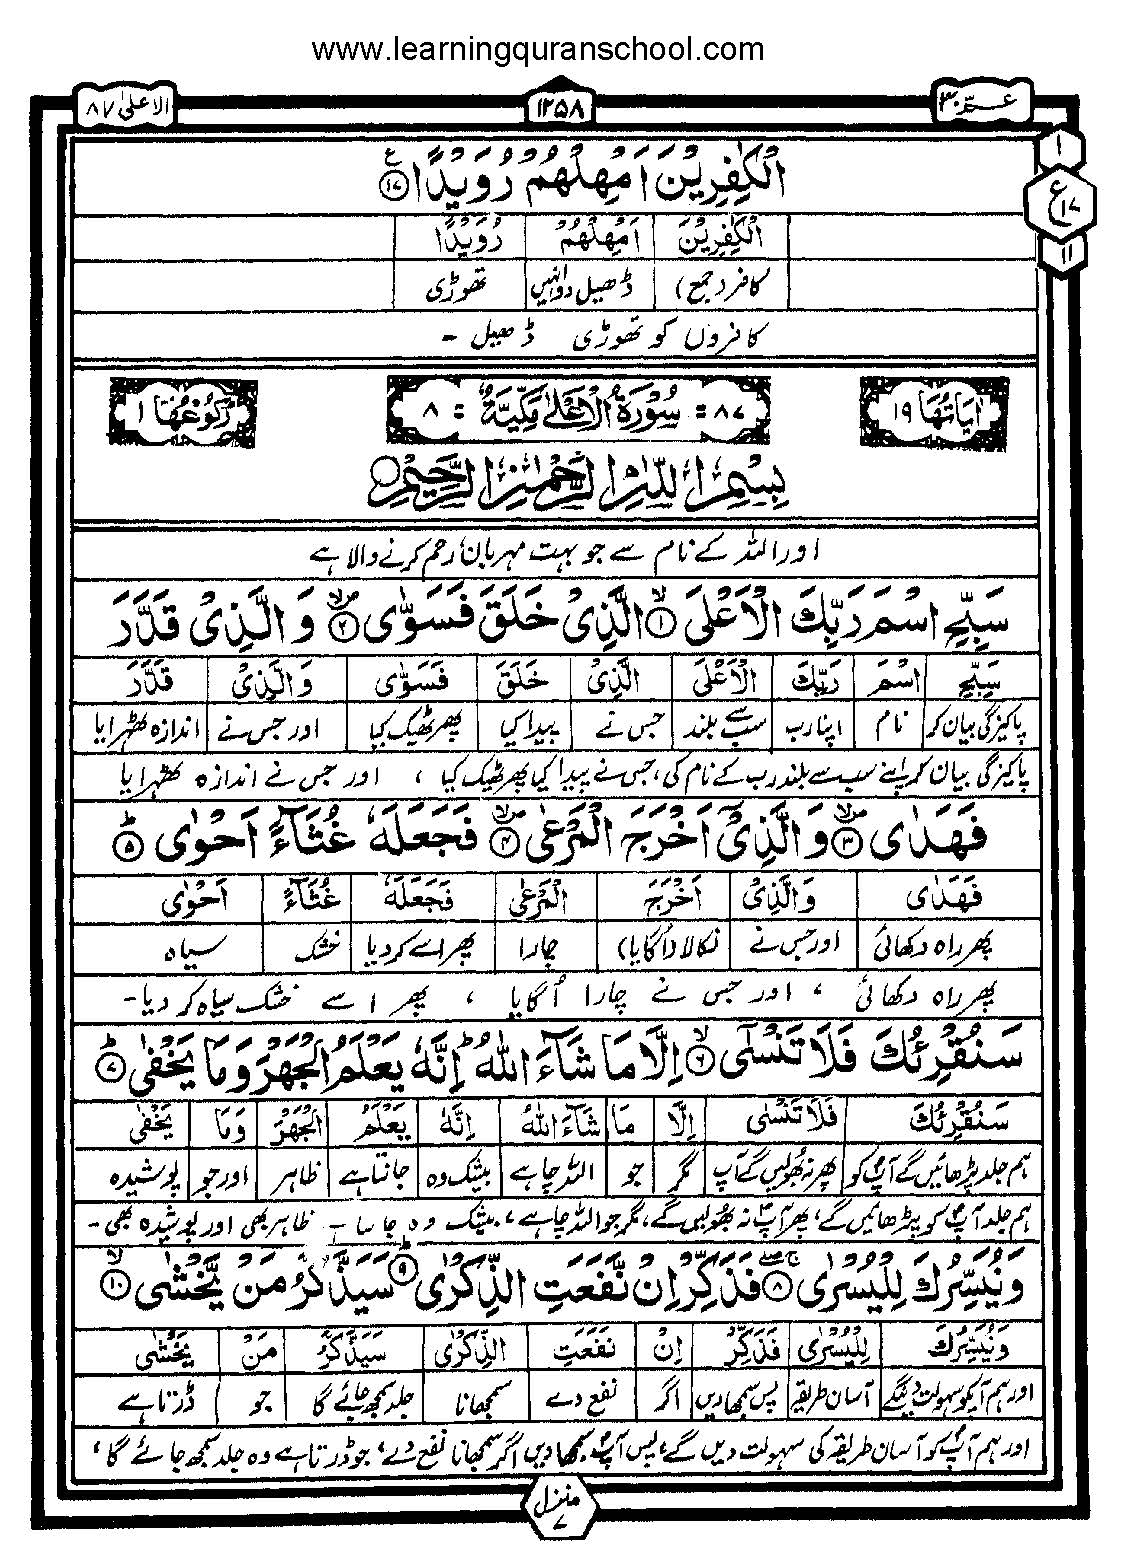 www.learningquranschool.com
الاعلیٰ ۸۷
۱۲۵۸
عمّ ۳۰
۱
ع ۱۷
۱۱
الْكٰفِرِيْنَ اَمْهِلْهُمْ رُوَيْدًا ۱۷ ع
الْكٰفِرِيْنَ اَمْهِلْهُمْ رُوَيْدًا
کافر (جمع) ڈھیل دو انہیں تھوڑی
کافروں کو تھوڑی ڈھیل -
اٰيَاتُهَا ۱۹
۸۷ = سُوْرَةُ الْاَعْلٰى مَكِّيَّةٌ = ۸
رُكُوْعُهَا ۱
بِسْمِ اللّٰهِ الرَّحْمٰنِ الرَّحِيْمِ
اور اللہ کے نام سے جو بہت مہربان رحم کرنے والا ہے
سَبِّحِ اسْمَ رَبِّكَ الْاَعْلَى ۱ الَّذِىْ خَلَقَ فَسَوّٰى ۲ وَالَّذِىْ قَدَّرَ
سَبِّحِ اسْمَ رَبِّكَ الْاَعْلَى الَّذِىْ خَلَقَ فَسَوّٰى وَالَّذِىْ قَدَّرَ
پاکیزگی بیان کر نام اپنا رب سب سے بلند جس نے پیدا کیا پھر ٹھیک کیا اور جس نے اندازہ ٹھہرایا
پاکیزگی بیان کر اپنے سب سے بلند رب کے نام کی، جس نے پیدا کیا پھر ٹھیک کیا ، اور جس نے اندازہ ٹھہرایا
فَهَدٰى ۳ وَالَّذِىْٓ اَخْرَجَ الْمَرْعٰى ۴ فَجَعَلَهٗ غُثَآءً اَحْوٰى ۵
فَهَدٰى وَالَّذِىْ اَخْرَجَ الْمَرْعٰى فَجَعَلَهٗ غُثَآءً اَحْوٰى
پھر راہ دکھائی اور جس نے نکالا (اُگایا) چارا پھر اسے کر دیا خشک سیاہ
پھر راہ دکھائی ، اور جس نے چارا اُگایا ، پھر اسے خشک سیاہ کر دیا -
سَنُقْرِئُكَ فَلَا تَنْسٰٓى ۶ اِلَّا مَا شَآءَ اللّٰهُ اِنَّهٗ يَعْلَمُ الْجَهْرَ وَمَا يَخْفٰى ۷
سَنُقْرِئُكَ فَلَا تَنْسٰى اِلَّا مَا شَآءَ اللّٰهُ اِنَّهٗ يَعْلَمُ الْجَهْرَ وَمَا يَخْفٰى
ہم جلد پڑھائیں گے آپؐ کو پھر نہ بھولیں گے آپ مگر جو اللہ چاہے بیشک وہ جانتا ہے ظاہر اور جو پوشیدہ
ہم جلد آپؐ کو پڑھائیں گے، پھر آپؐ نہ بھولیں گے، مگر جو اللہ چاہے، بیشک وہ جانتا - ظاہر بھی اور پوشیدہ بھی -
وَنُيَسِّرُكَ لِلْيُسْرٰى ۸ فَذَكِّرْ اِنْ نَّفَعَتِ الذِّكْرٰى ۹ سَيَذَّكَّرُ مَنْ يَّخْشٰى ۱۰
وَنُيَسِّرُكَ لِلْيُسْرٰى فَذَكِّرْ اِنْ نَفَعَتِ الذِّكْرٰى سَيَذَّكَّرُ مَنْ يَخْشٰى
اور ہم آپکو سہولت دینگے آسان طریقے پس سمجھا دیں اگر نفع دے سمجھانا جلد سمجھ جائے گا جو ڈرتا ہے
اور ہم آپؐ کو آسان طریقے کی سہولت دیں گے، پس آپؐ سمجھا دیں اگر سمجھانا نفع دے، جو ڈرتا ہے وہ جلد سمجھ جائے گا ،
منزل ۷